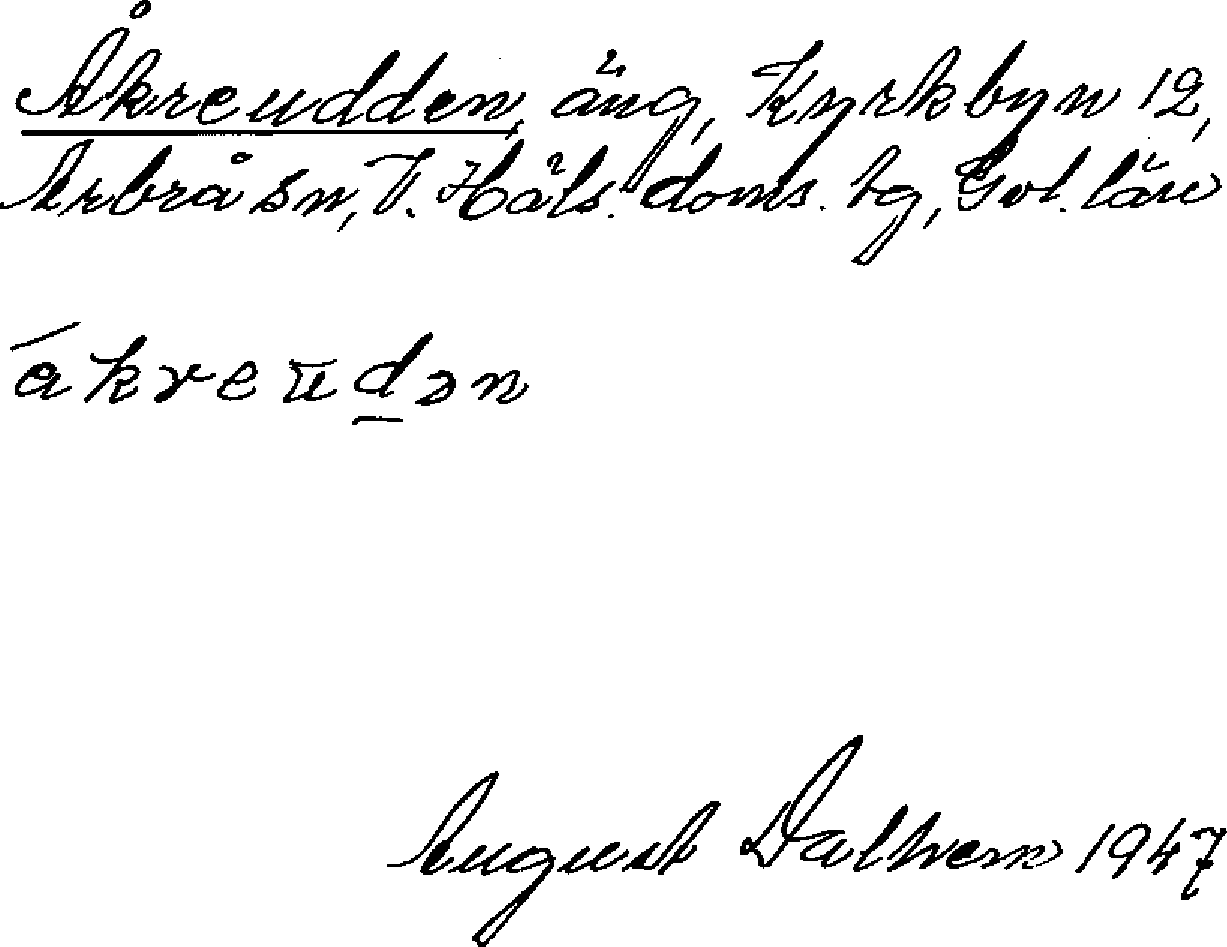 Åkreudden, äng, Kyrkbyn 12,
Arbrå sn, V. Häls. doms. tg, Gvl. län
ákreūd̲ən
August Dalhem 1947